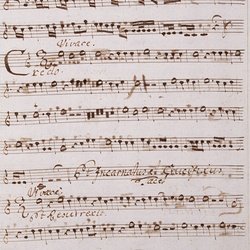 Vivace.
Credo
Et Incarnatus et Crucifixus
tacet
Vivace
Et Resurrexit.